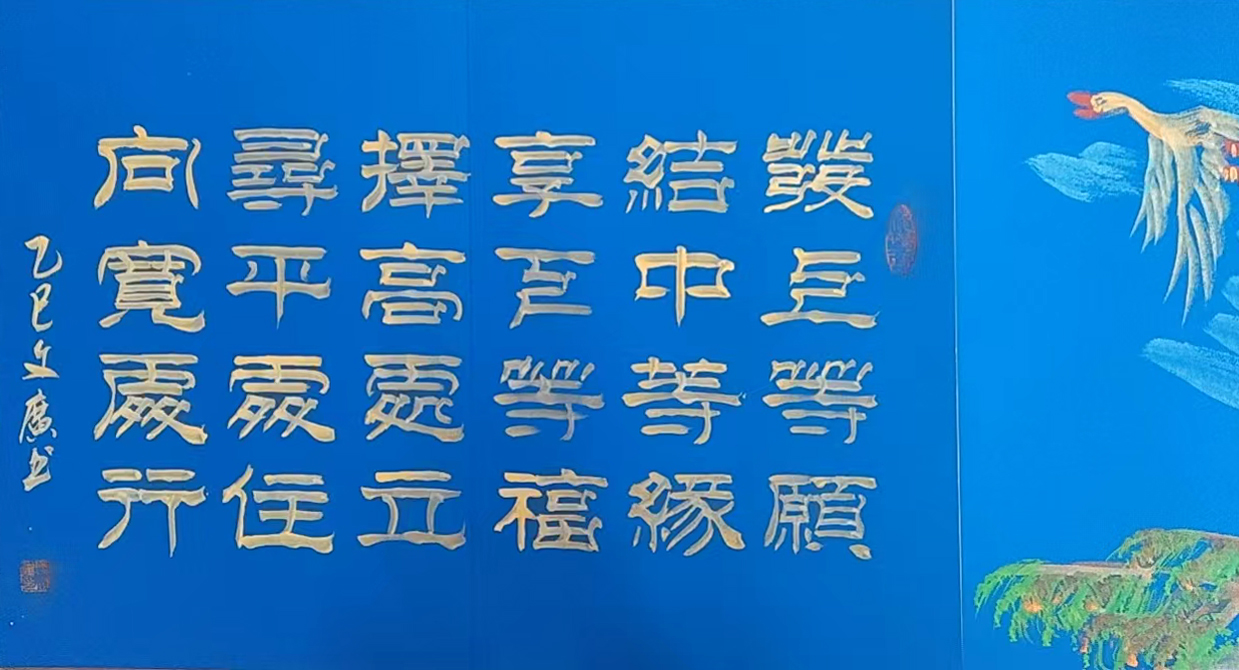 發上等願
結中等緣
享下等福
擇高處立
尋平處住
向寬處行
乙巳文廣书